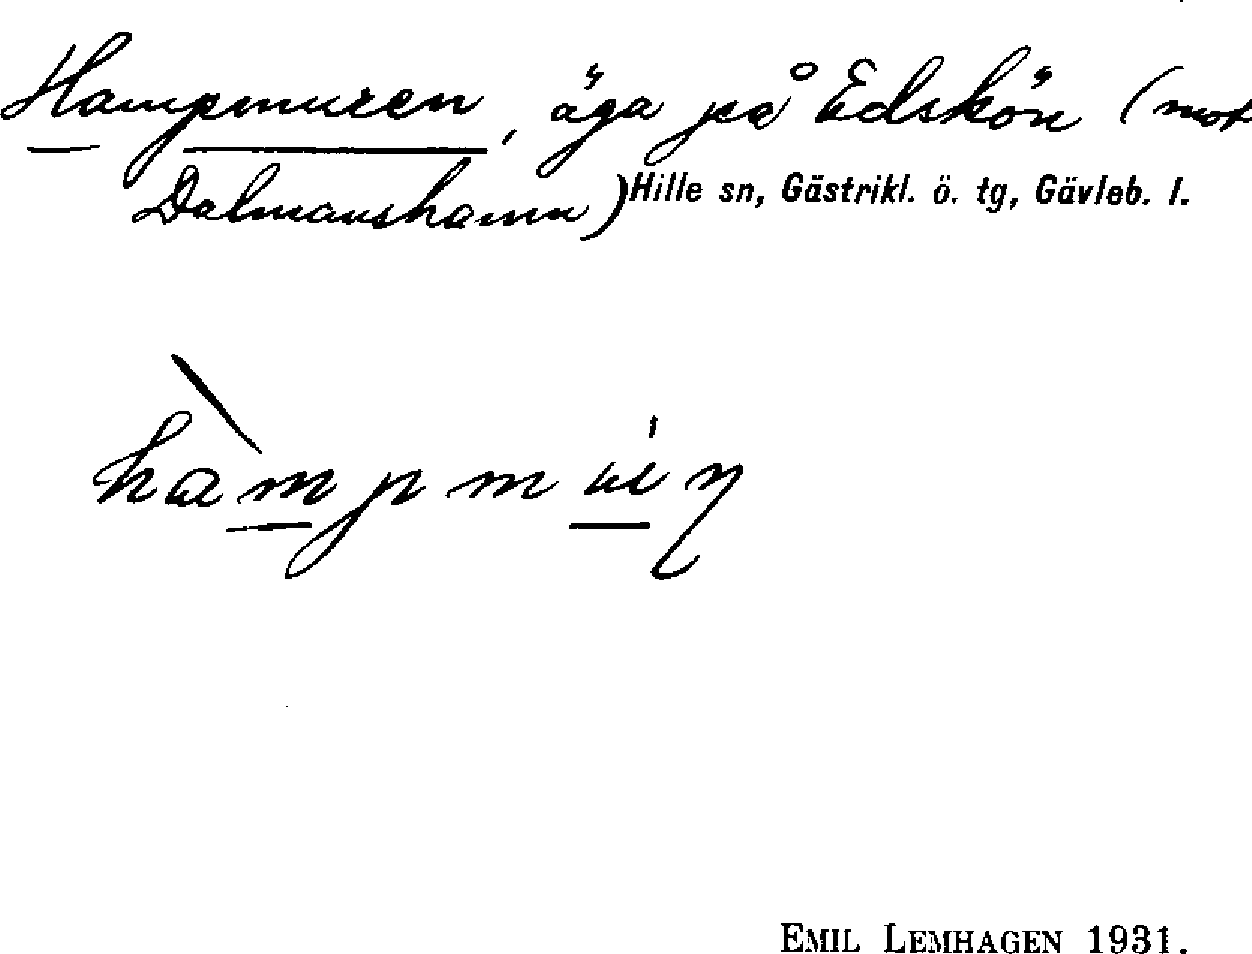 Hampmuren, äga på Edskön (mot
Dalmanshamn) Hille sn, Gästrikl. ö. tg, Gävleb. l.
EMIL LEMHAGEN 1931.